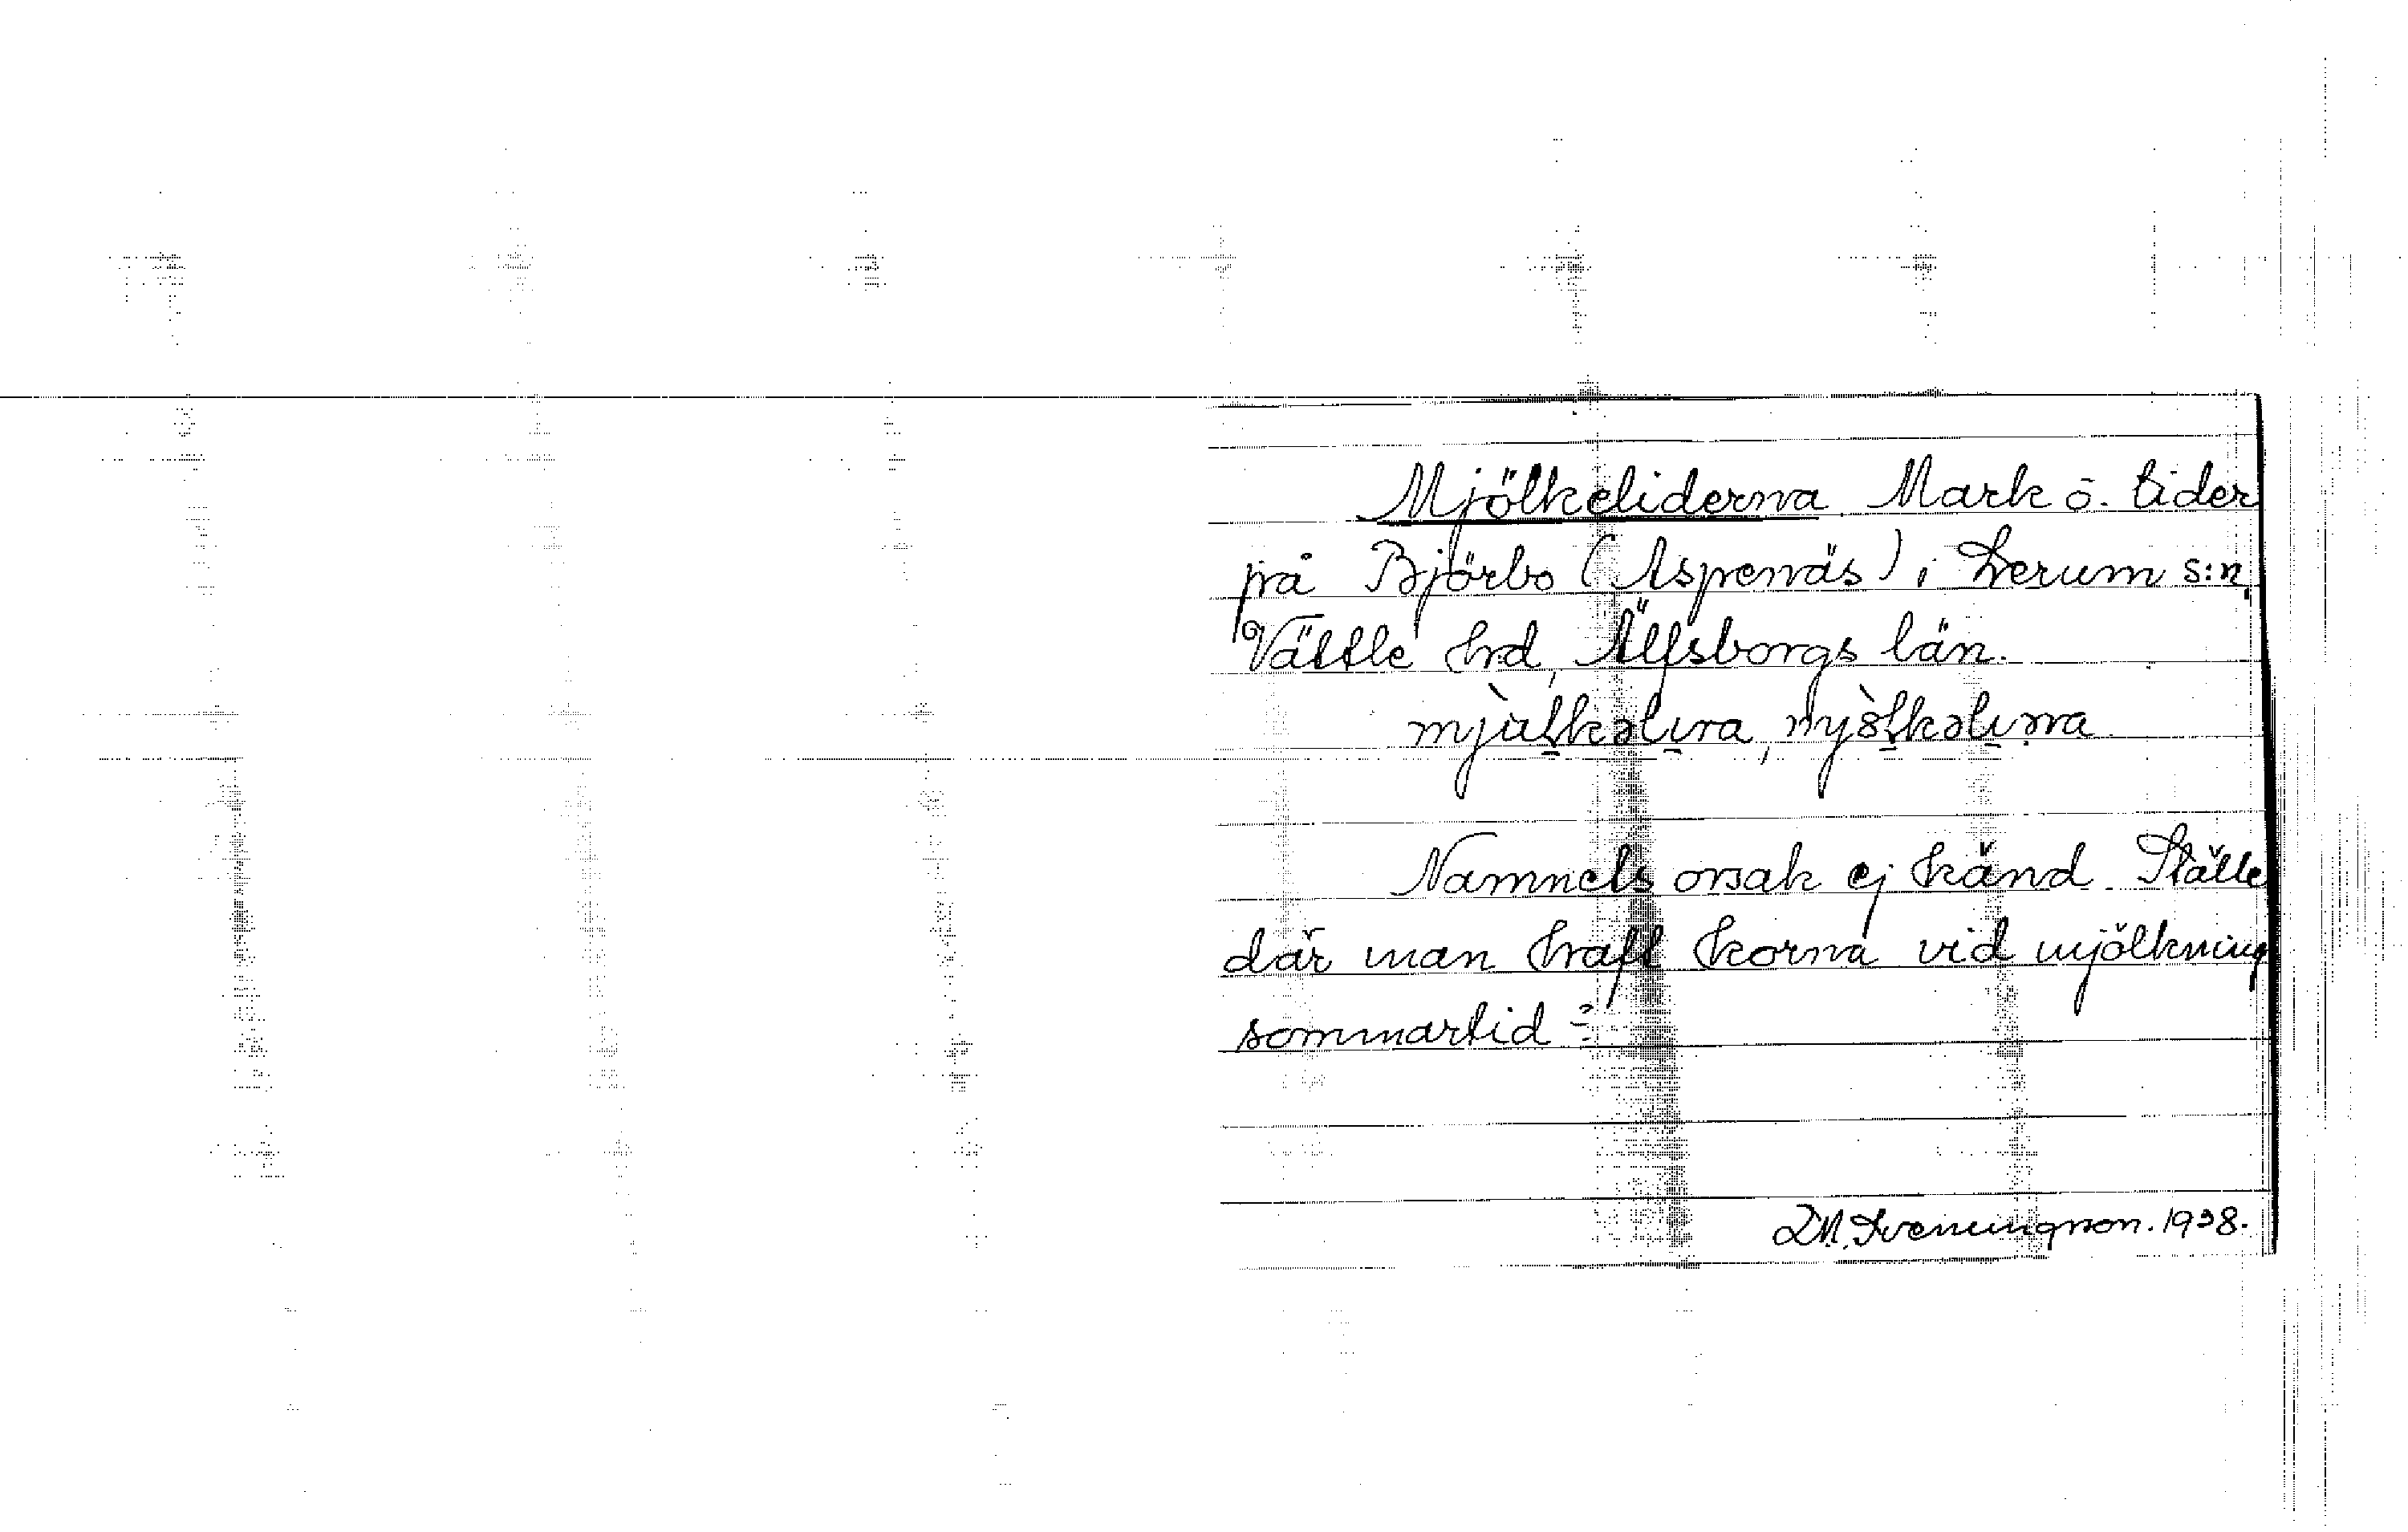 Mjölkeliderna. Mark o. lider
på Björbo (Aspenäs) i Lerum s:n,
Vättle hrd, Älfsborgs län.
mjàlkəlıra, mjòlkəlıṛna.
Namnets orsak ej känd. Ställe
där man haft korna vid mjölkning
sommartid?
D.M. Svenningson. 1938.